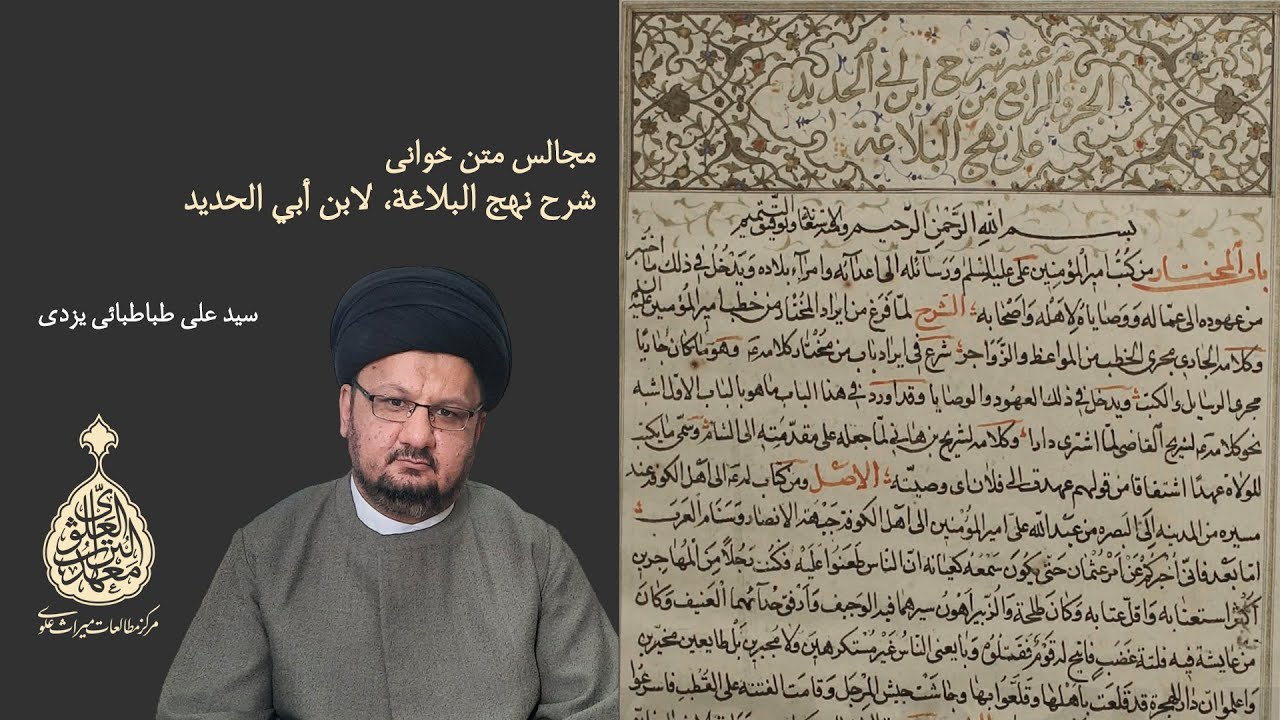 مجالس متن خوانی
شرح نهج البلاغة، لابن أبي الحديد
سید علی طباطبائی یزدی
معهد التراث العلوي
مرکز مطالعات میراث علوی
الجزو الرابع عشر من شرح ابن ابي الحديد
على نهج البلاغة
بسم الله الرحمن الرحيم وبالاستعانة وتوفيق التتميم
باب المختار من كتب امير المؤمنين علي عليه السلم ورسائله الى اعدائه وامرآء بلاده ويدخل في ذلك ما اختير
من عهوده الى عماله ووصاياه لاهله واصحابه الشرح لما فرغ من ايراد المختار من خطب امير المؤمنين
وكلامه الجاري مجرى الخطب من المواعظ والزواجر شرع في ايراد باب من مختار كلامه ع وهو ما كان جاريا
مجرى الرسايل والكتب ويدخل في ذلك العهود والوصايا وقد اورد في هذا الباب ما هو بالباب الاول اشبه
نحو كلامه ع لشريح القاضي لما اشترى دارا وكلامه لشريح بن هاني لما جعله على مقدمته الى الشام وسمي ما يكتب
للولاة عهدا اشتقاقا من قولهم عهدت الى فلان اي وصيته الاصل ومن كتاب له ع الى اهل الكوفة عند
مسيره من المدينه الى البصره من عبد الله علي امير المؤمنين الى اهل الكوفة جبهة الانصار وسنام العرب
اما بعد فاني اخبركم عن امر عثمان حتى يكون سمعه كعيانه ان الناس طعنوا عليه فكنت رجلا من المهاجرين
اكثر استعتابه واقل عتابه وكان طلحة والزبير اهون سيرهما فيه الوجيف وارفق حدائهما العنيف وكان
من عايشة فيه فلتة غضب فاتيح له قوم فقتلوه وبايعني الناس غير مستكرهين ولا مجبرين بل طايعين مخيرين
واعلموا ان دار الهجرة قد قلعت باهلها وقلعوا بها وجاشت جيش المرجل وقامت الفتنه على القطب فاسرعوا